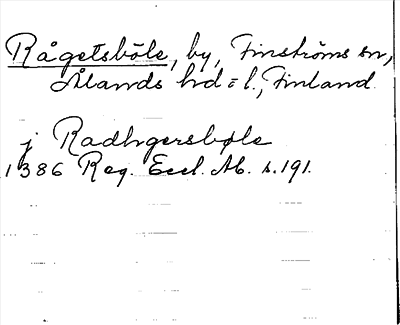 Rågetsböle, by, Finströms sn,
Ålands hd = l., Finland.
j Radhgersbøle
1386 Reg. Eccl. Ab. s. 191.